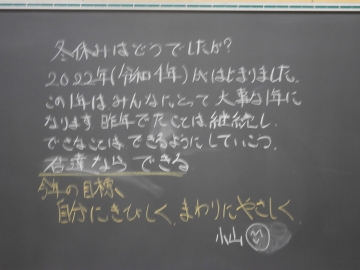 冬休みはどうでしたか?
2022年(令和4年)はじまりました。
この1年はみんなにとって大事な1年に
なります。昨年でたことは継続し
できなことはできるようにしていこう。
君達ならできる
今年の目標、
自分にきびしく、まわりにやさしく
小山